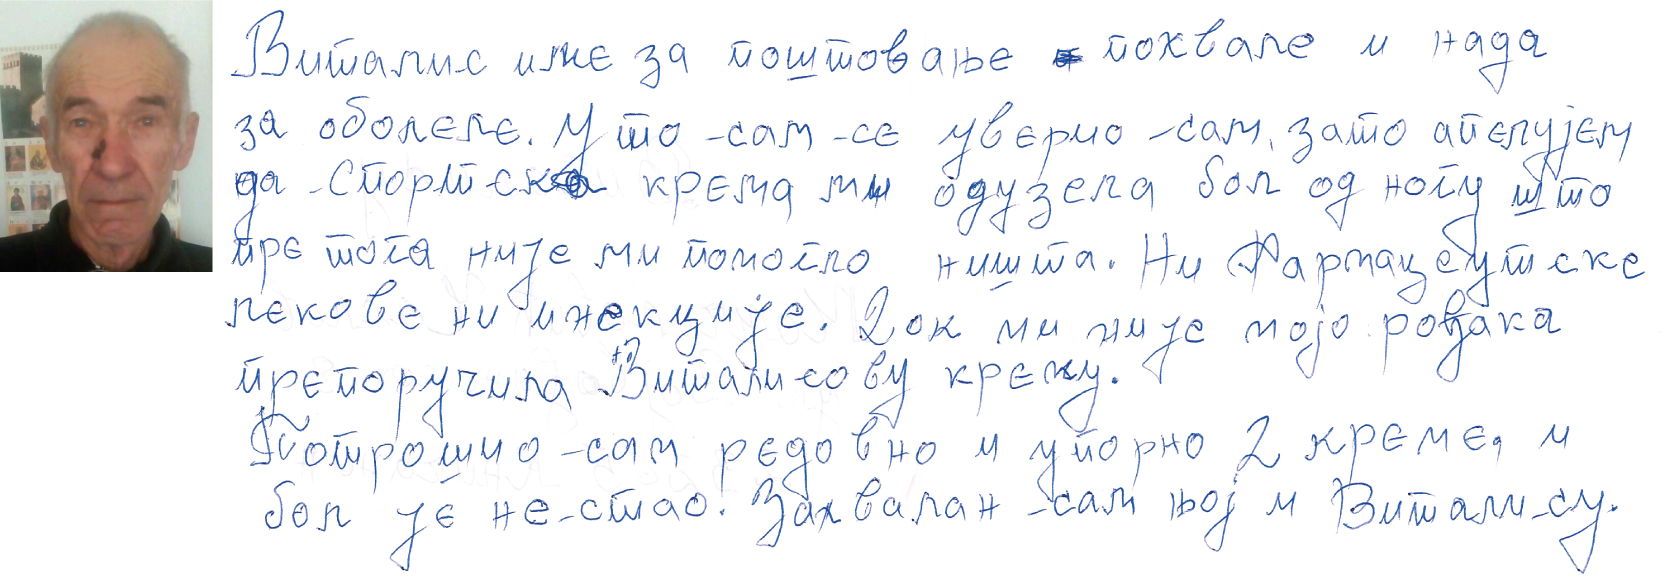 Виталис име за поштовање похвале и нада
за оболеле. У то сам се уверио сам, зато апелујем
да Спортска крема ми одузела бол од ногу што
пре тога није ми помогло ништа. Ни Фармацеутске
лекове ни инекције. Док ми није мојо рођака
препоручила Виталисову крему.
Потрошио сам редовно и упорно 2 креме, и
бол је нестао. Захвалан сам њој и Виталису.